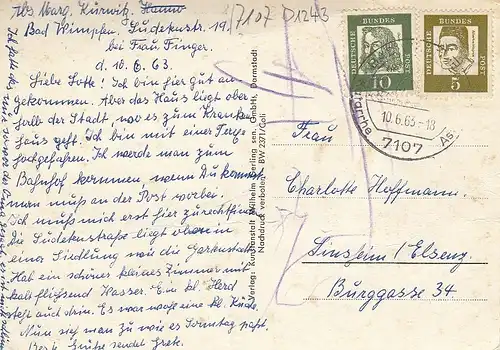 Abs. Marg. Kurwitz, Hanno
Bad Wimpfen, Sudetenstr. 19.
bei Frau Finger.
d. 10.6.63.
Liebe Lotte! Ich bin hier gut an-
gekommen. Aber das Haus liegt ober-
halb der Stadt, wo es zum Kranken-
haus geht. Ich bin mit einer Taxe
hochgefahren. Ich werde man zum
Bahnhof kommen, wenn Du kommst
man muß an der Post vorbei.
Ich muß mich erst hier zurechtfinden
Die Sudetenstraße liegt oben in
einer Siedlung wie die Gartenstadt
Hat ein schönes kleines Zimmer mit
kalt fließend Wasser. Ein kl. Herd
steht auch drin. Es war wohl eine kl. Küche.
Nun sieh man zu wie es Sonntag paßt.
Grüße sendet Grete.
7107 D1243
DEUTSCHE BUNDESPOST
10
DEUTSCHE BUNDESPOST
5
10.6.63-18
7107
Verlag: Kunstanstalt Wilhelm Gerling sen. GmbH, Darmstadt
Nachdruck verboten, BW 2371/Coli
Frau
Charlotte Hoffmann
Sinsheim/Elsenz.
Burggasse 34.